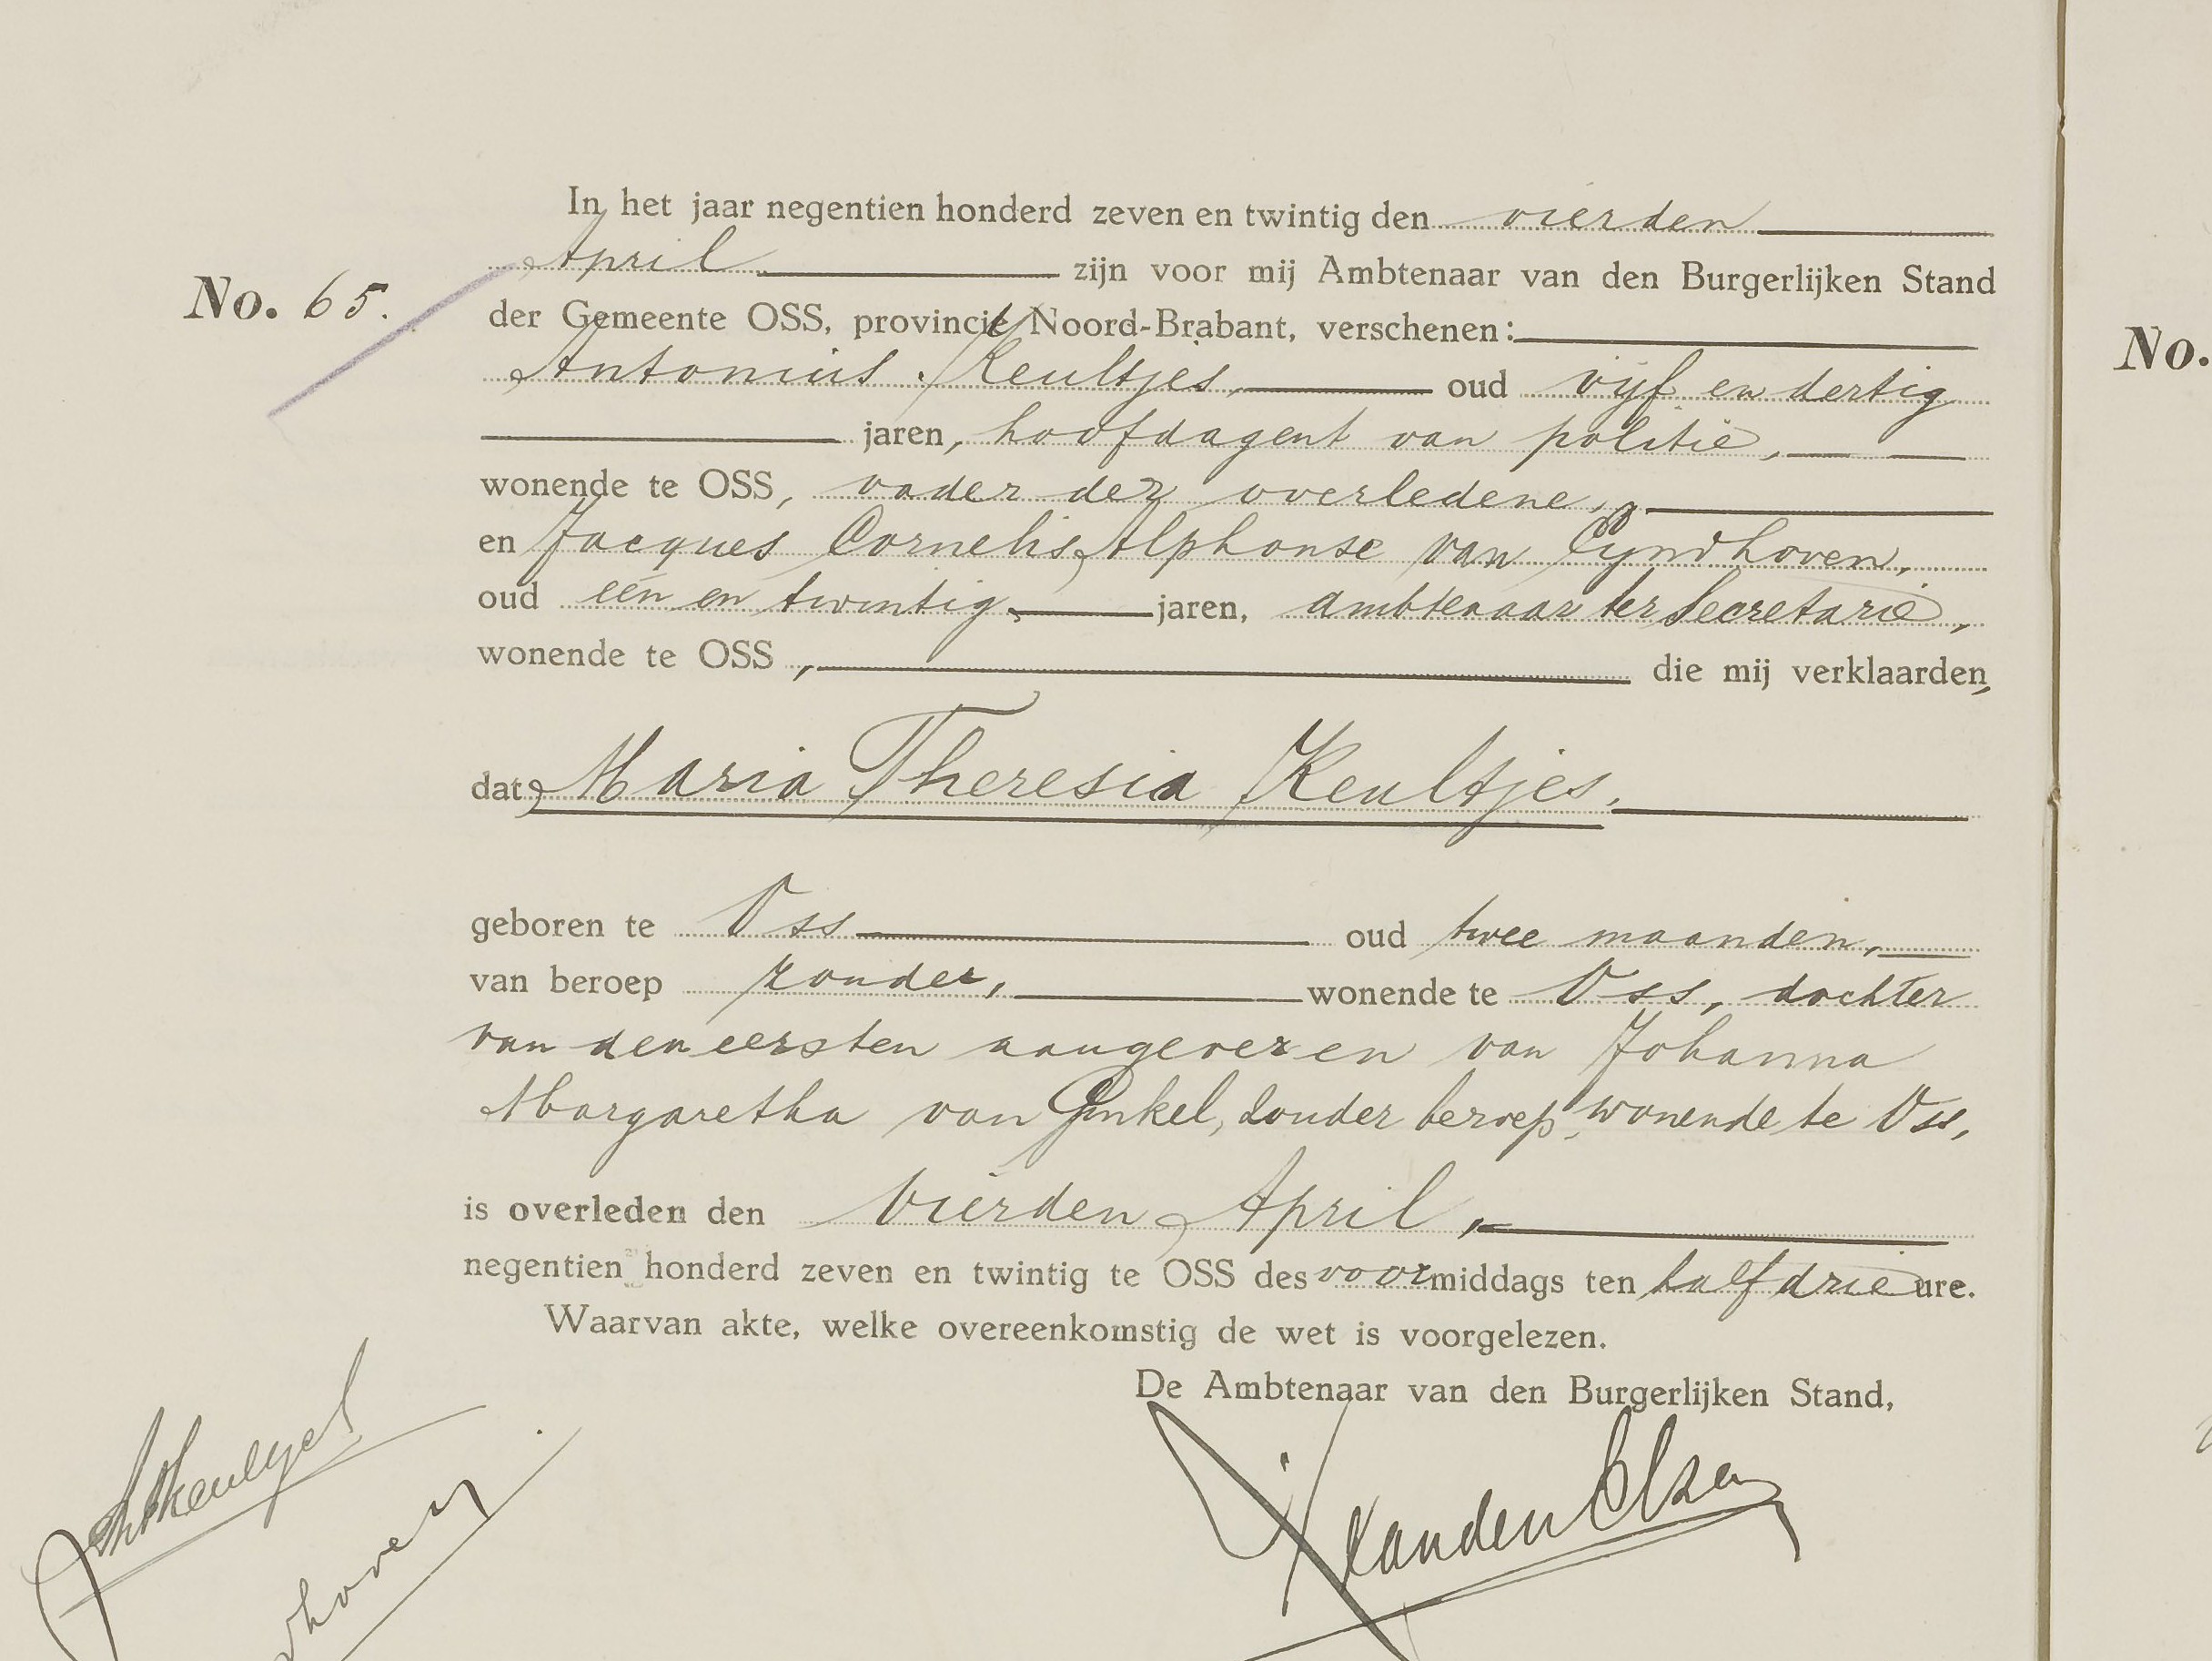 In het jaar negentien honderd zeven en twintig den vierden
April zijn voor mij Ambtenaar van den Burgerlijken Stand
No. 65.
der Gemeente OSS, provincie Noord-Brabant, verschenen:
No.
Antonius Keultjes oud vijf en dertig
jaren, hoofdagent van politie,
wonende te OSS, vader der overledene,
en Jacques Cornelis Alphonse van Eyndhoven,
oud één en twintig jaren, ambtenaar ter Secretarie,
wonende te OSS, die mij verklaarden,
dat Maria Theresia Keultjes,
geboren te Oss oud twee maanden,
van beroep zonder, wonende te Oss, dochter
van den eersten aangever en van Johanna
Margaretha van Ginkel, zonder beroep, wonende te Oss,
is overleden den vierden April,
negentien honderd zeven en twintig te OSS des voormiddags ten half drie ure.
Waarvan akte, welke overeenkomstig de wet is voorgelezen.
De Ambtenaar van den Burgerlijken Stand,
van den Elzen